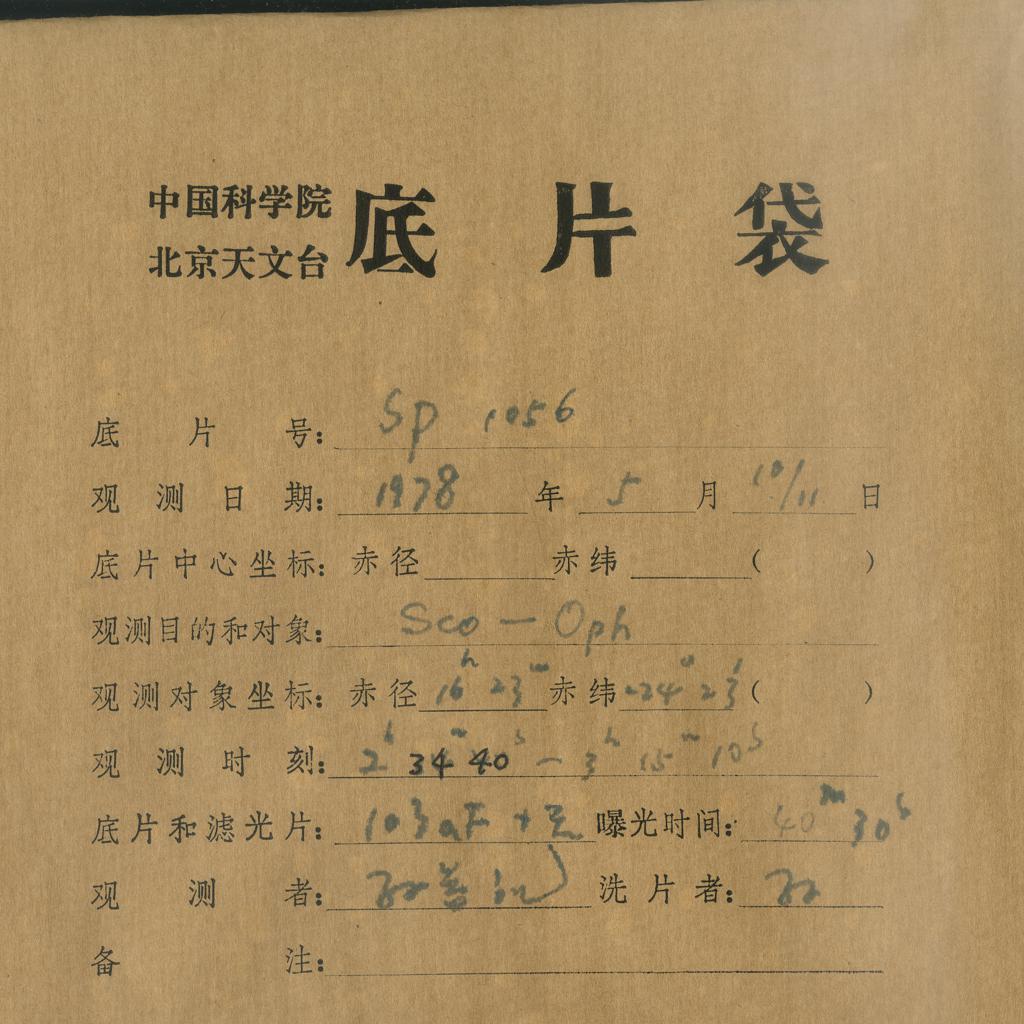 中国科学院
北京天文台 底片袋
底片号: Sp 1056
观测日期: 1978 年 5 月 10/11 日
底片中心坐标: 赤径 赤纬 ( )
观测目的和对象: Sco — Oph
观测对象坐标: 赤径 16h 23m 赤纬 -24° 23′ ( )
观测时刻: 2h 34m 40s — 3h 15m 10s
底片和滤光片: 103aF + 曝光时间: 40m 30s
观测者: 孙 洗片者: 孙
备注: